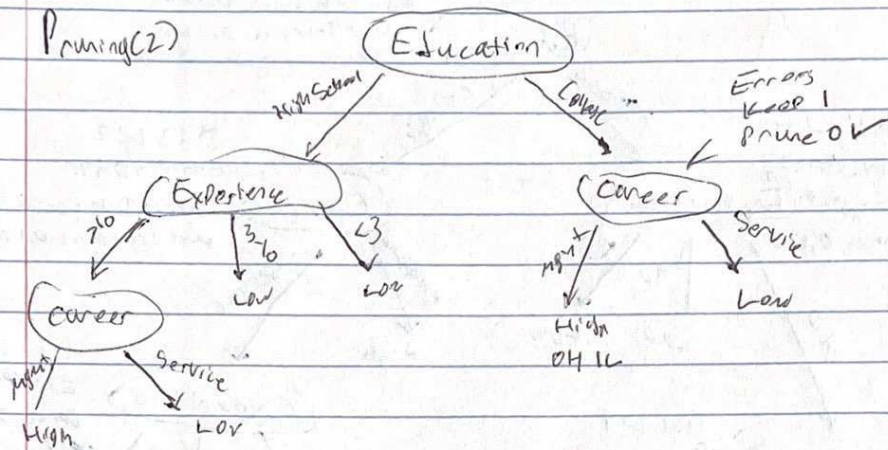 Pruning(2)
Education
High School
College
Errors
Keep 1
Prune 0 ✓
Experience
Career
>10
3-10
<3
Mgmt
Service
Low
Low
High
Low
0H 1L
Career
Mgmt
Service
High
Low